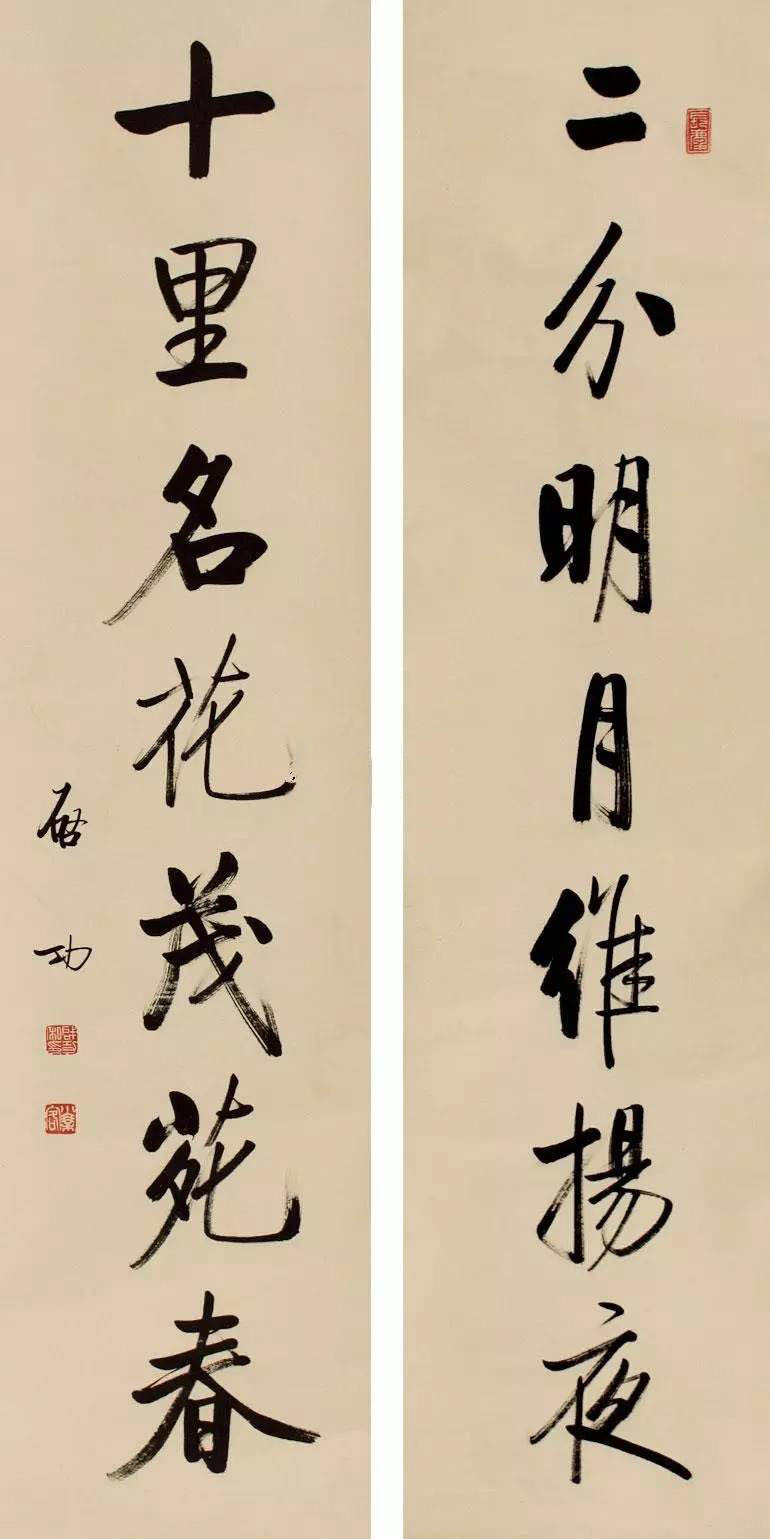 二分明月維揚夜
十里名花茂苑春
启功